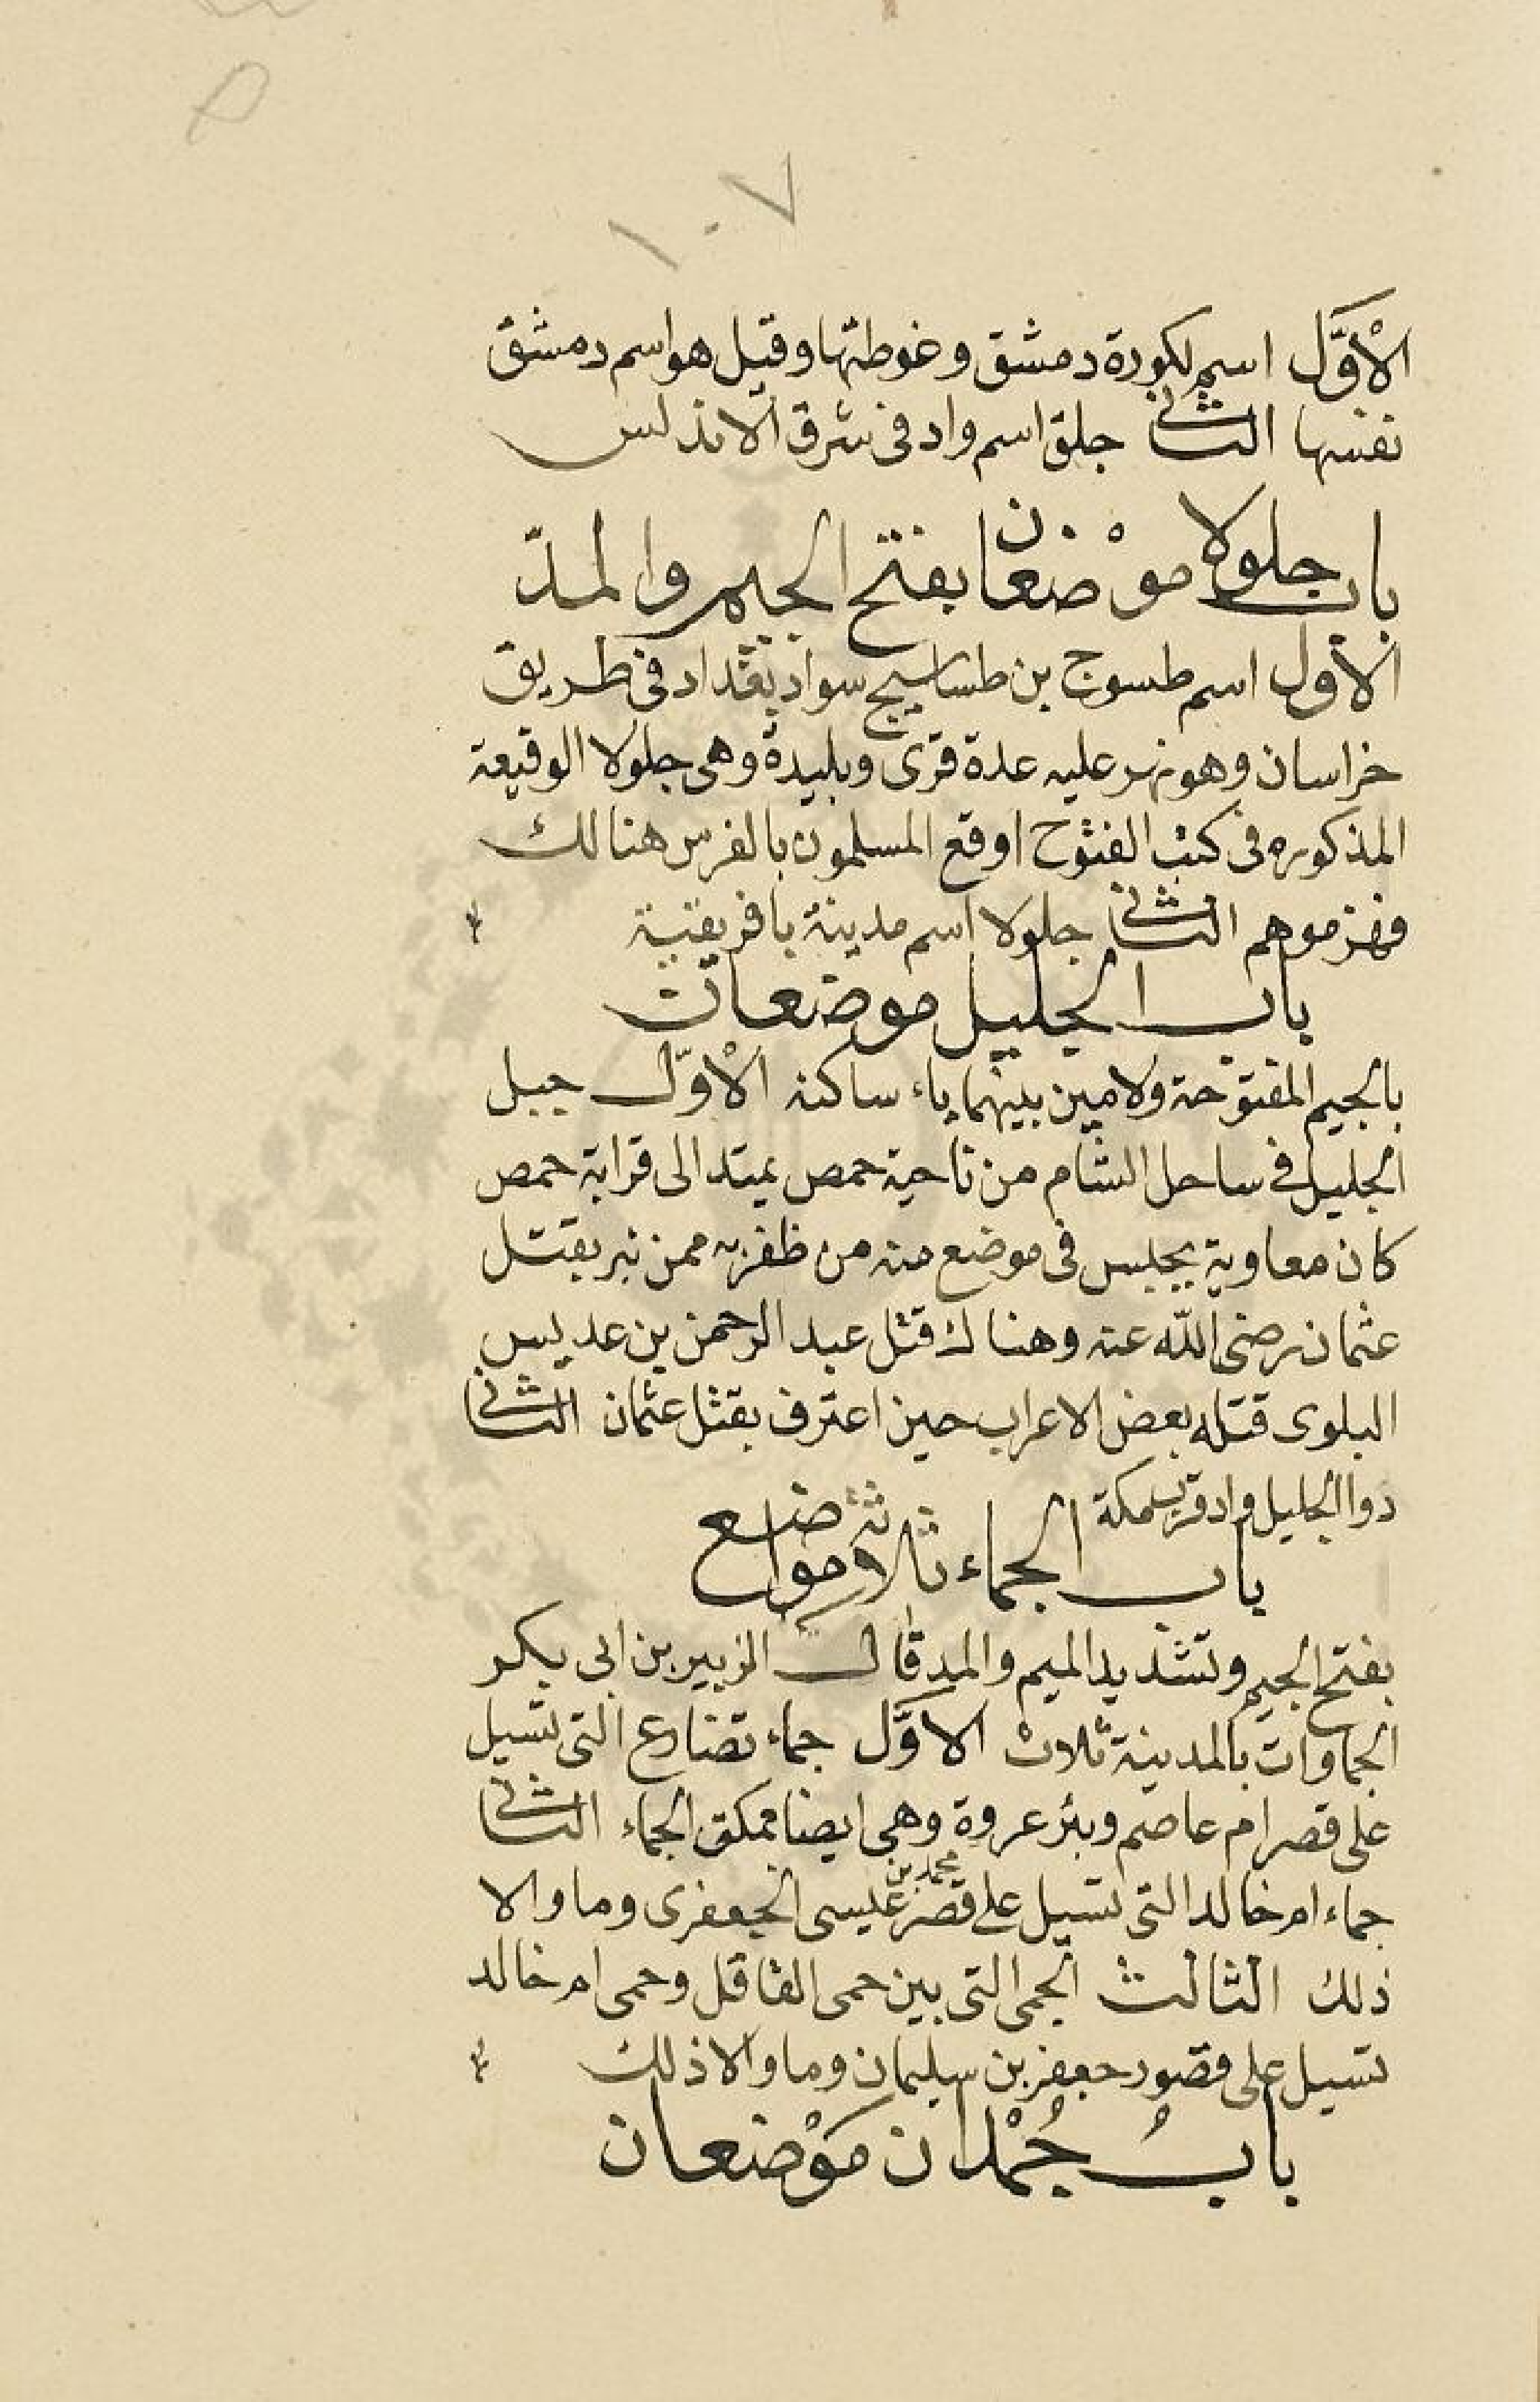 ١٠٧
الْأوَّل اسم لكورة دمشق وغوطتها وقيل هو اسم دمشق
نفسها الثاني جلق اسم واد فى شرق الاندلس
باب جلولا موْضعان بفتح الجيم والمدّ
الأول اسم طسوج بن طساسيج سواد بغداد فى طريق
خراسان وهو نهر عليه عدة قرى وبليدة وهى جلولا الوقيعة
المذكوره فى كتب الفتوح اوقع المسلمون بالفرس هنالك
فهزموهم الثاني جلولا اسم مدينة بافريقية
باب الجليل موضعان
بالجيم المفتوحة ولامين بينهما ياء ساكنه الْأوّل جبل
الجليل فى ساحل الشام من ناحية حمص يمتد الى قرابة حمص
كان معاوية يجلس فى موضع منه من ظفر به ممن نبر بقتل
عثمان رضى الله عنه وهناك قتل عبد الرحمن بن عديس
البلوى قتله بعض الاعراب حين اعترف بقتل عثمان الثاني
ذوا الجليل واد قرب مكة
باب الجماء ثلاثة مواضع
بفتح الجيم وتشديد الميم والمد قال الزبير بن ابى بكر
الجماوات بالمدينة ثلاث الاوَّل جماء تضارع التى تسيل
على قصر ام عاصم وبئر عروة وهى ايضا ممكق الجماء الثاني
جماء ام خالد التى تسيل على قصر محمد بن عيسى الجعفرى وما والا
ذلك الثالث الجمى التى بين حمى الفاقل وحمى ام خالد
تسيل على قصور جعفر بن سليمان وما والا ذلك
بابُ جُمْدان موْضعان